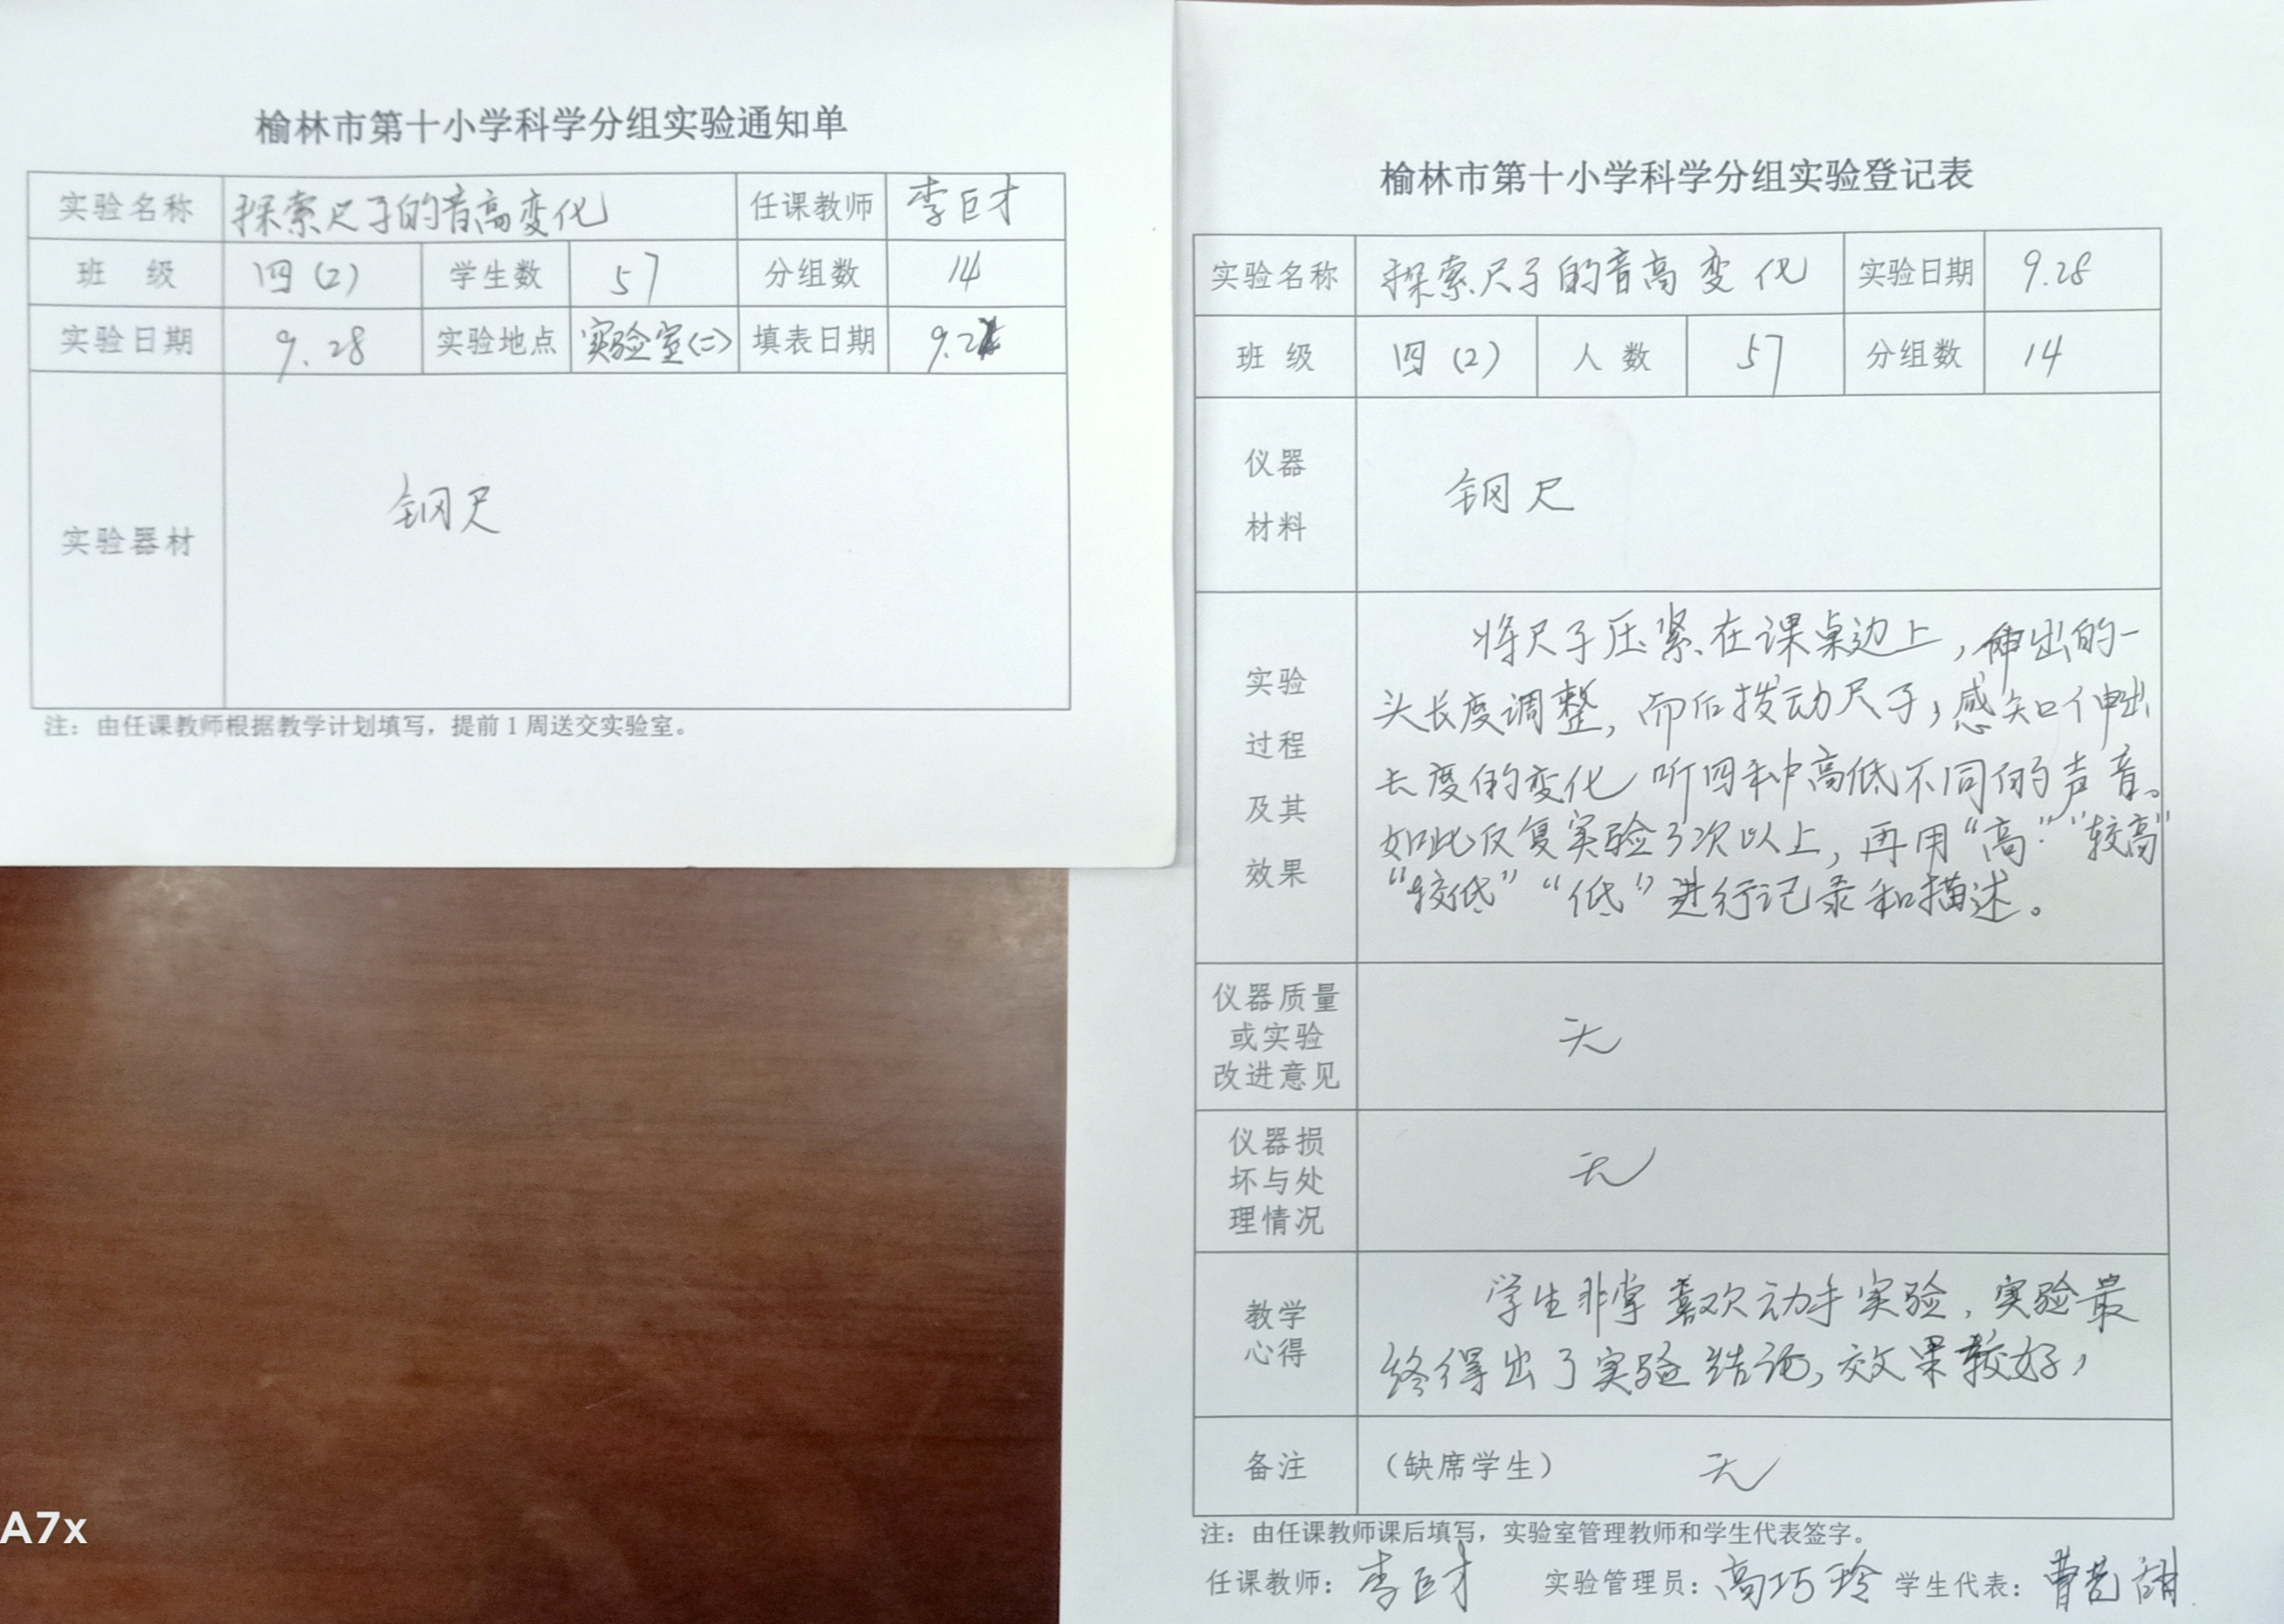 榆林市第十小学科学分组实验通知单
实验名称 探索尺子的音高变化 任课教师 李巨才
班 级 四(2) 学生数 57 分组数 14
实验日期 9.28 实验地点 实验室(二) 填表日期
实验器材 钢尺
注：由任课教师根据教学计划填写，提前1周送交实验室。
榆林市第十小学科学分组实验登记表
实验名称 探索尺子的音高变化 实验日期 9.28
班 级 四(2) 人 数 57 分组数 14
仪器
材料
钢尺
实验
过程
及其
效果
将尺子压紧在课桌边上，伸出的一
头长度调整，而后拨动尺子，感知伸出
长度的变化 听四种高低不同的声音。
如此反复实验3次以上，再用“高”“较高”
“较低”“低”进行记录和描述。
仪器质量
或实验
改进意见
无
仪器损
坏与处
理情况
无
教学
心得
学生非常喜欢动手实验，实验最
终得出了实验结论，效果较好，
备注 （缺席学生） 无
注：由任课教师课后填写，实验室管理教师和学生代表签字。
任课教师：李巨才 实验管理员：高巧玲 学生代表：曹
A7x